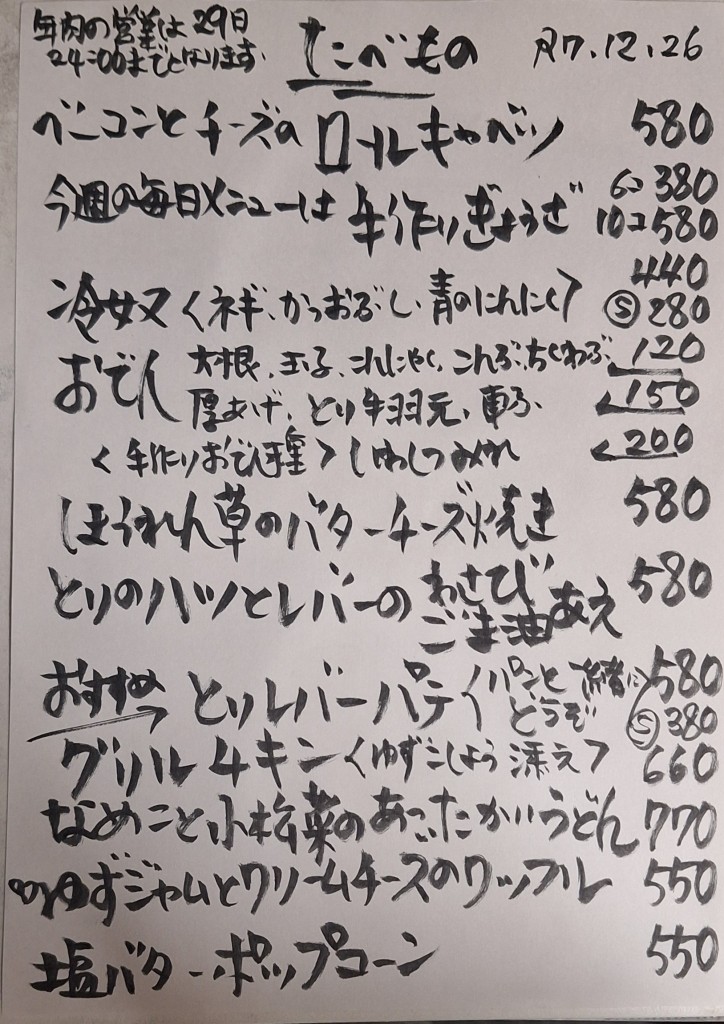 年内の営業は29日
24:00までとなります
たべもの
R7.12.26
ベーコンとチーズのロールキャベツ 580
今週の毎日メニューは 手作りぎょうざ 6コ 380
10コ 580
冷奴〈ネギ、かつおぶし、青のにんにく〉 440
Ⓢ 280
おでん 大根、玉子、こんにゃく、こんぶ、ちくわぶ 120
厚あげ、とり手羽元、車ふ 150
〈手作りおでん種〉いわしつみれ 200
ほうれん草のバターチーズ焼き 580
とりのハツとレバーのわさび ごま油あえ 580
おすすめ とりレバーパテ〈パンと一緒にどうぞ〉 580
Ⓢ 380
グリルチキン〈ゆずこしょう添え〉 660
なめこと小松菜のあったかいうどん 770
ゆずジャムとクリームチーズのワッフル 550
塩バターポップコーン 550